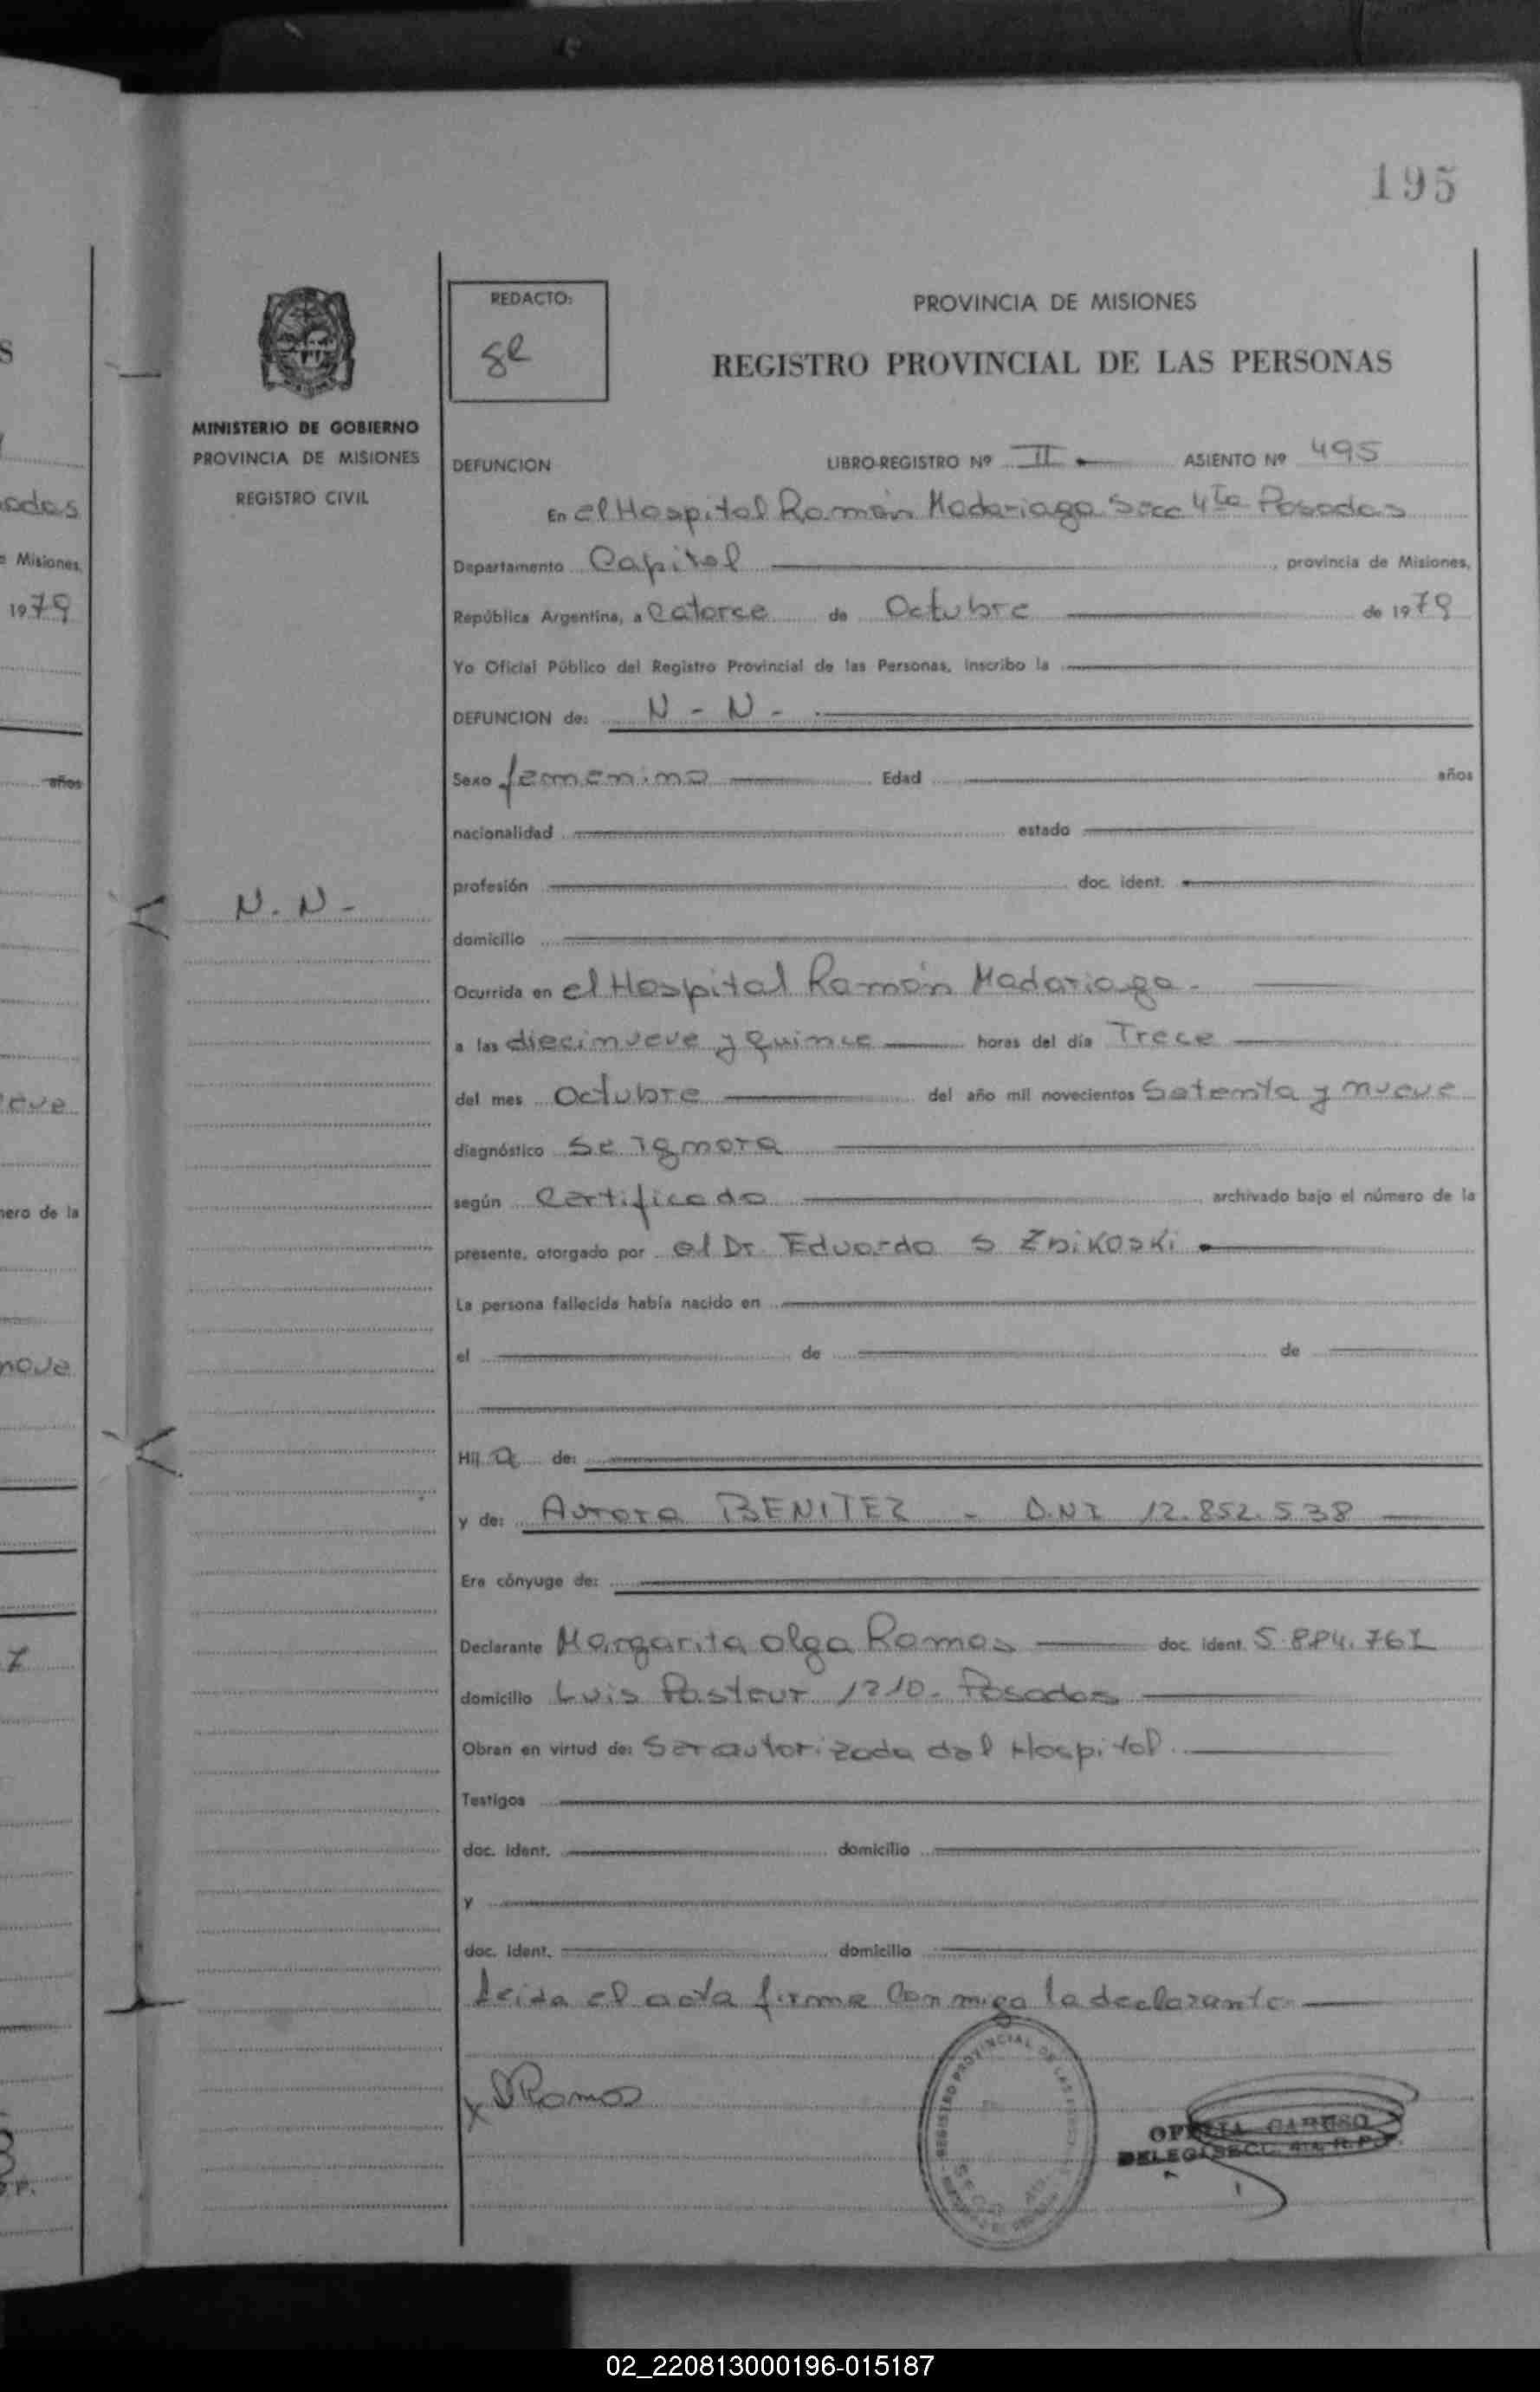 195
REDACTO:
PROVINCIA DE MISIONES
REGISTRO PROVINCIAL DE LAS PERSONAS
MINISTERIO DE GOBIERNO
PROVINCIA DE MISIONES
REGISTRO CIVIL
DEFUNCION LIBRO-REGISTRO Nº II ASIENTO Nº 495
En el Hospital Ramón Madariaga Secc 4ta Posadas
Departamento Capital , provincia de Misiones,
República Argentina, a Catorce de Octubre de 1979
Yo Oficial Público del Registro Provincial de las Personas, inscribo la
DEFUNCION de: N - N -
Sexo femenino Edad años
nacionalidad estado
profesión doc. ident.
N. N -
domicilio
Ocurrida en el Hospital Ramón Madariaga -
a las diecinueve y quince horas del día Trece
del mes Octubre del año mil novecientos Setenta y nueve
diagnóstico Se ignora
según Certificado archivado bajo el número de la
presente, otorgado por el Dr. Eduardo S
La persona fallecida había nacido en
el de de
Hij a de:
y de: Aurora BENITEZ - D.N.I 12.852.538
Era cónyuge de:
Declarante Margarita Olga Ramos doc. ident.
domicilio Luis Pasteur Posadas
Obran en virtud de: Ser autorizada del Hospital
Testigos
doc. ident. domicilio
y
doc. ident. domicilio
Leida el acta firma Conmigo la declarante
x Ramos
REGISTRO PROVINCIAL DE LAS
OFELIA CARUSO
DELEG. SECC. 4ta. R.P.P.
odas
e Misiones,
1979
años
eve
nero de la
nove
02_220813000196-015187